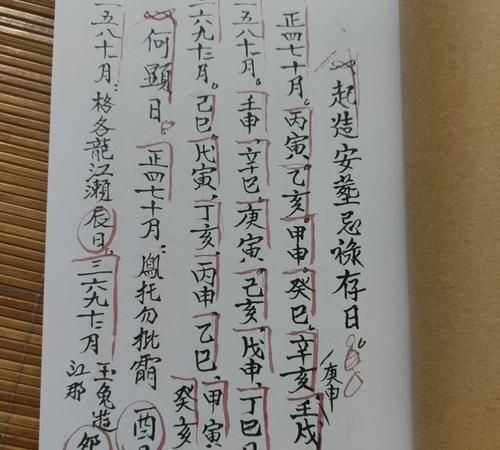 起造安葬忌祿存日。
正四七十月。丙寅、乙亥、甲申、癸巳。辛亥、壬戌
庚申
五八十月。壬申、辛巳、庚寅、己亥、戊申、丁巳
六九十二月。己巳、戊寅、丁亥、丙申、乙巳、甲寅
癸亥
何顯日。正四七十月：鳳托勿批霜酉
五八十月：格各龍江瀨辰日。三六九十二月
玉兔
江那